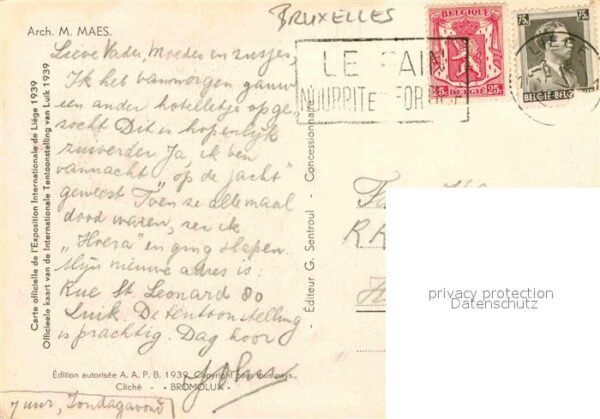 BRUXELLES
Arch. M. MAES.
Lieve Vader, Moeder en zusjes,
Ik heb vanmorgen gauw
een ander hotelletje opge
zocht Dit is hopenlijk
zuiverder. Ja, ik ben
vannacht "op de jacht"
geweest Toen ze allemaal
dood waren, zei ik
"Hoera" en ging slapen.
Mijn nieuwe adres is:
Rue St Leonard 80
Luik. De tentoonstelling
is prachtig. Dag hoor
John
7 uur, Zondagavond
Carte officielle de l'Exposition Internationale de Liége 1939
Officieele kaart van de Internationale Tentoonstelling van Luik 1939
Édition autorisée A. A. P. B. 1939. Copyright pour tous pays..
Cliché - "BROMOLUX" -
- Éditeur G. Sentroul - Concessionnaire
LE PAIN
NOURRIT et FORTIFIE
BELGIQUE
25 25
BELGIË
75c 75c
BELGIE-BELGIQUE
LIEGE
privacy protection
Datenschutz